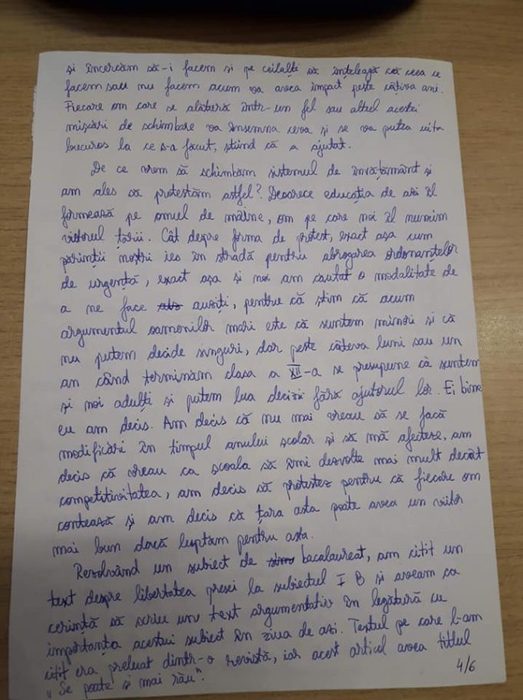 și încercăm să-i facem și pe ceilalți să înțeleagă că ceea ce
facem sau nu facem acum va avea impact peste câțiva ani.
Fiecare om care se alătură într-un fel sau altul acestei
mișcări de schimbare va însemna ceva și se va putea uita
bucuros la ce s-a făcut, știind că a ajutat.
De ce vrem să schimbăm sistemul de învățământ și
am ales să protestăm astfel? Deoarece educația de azi îl
formează pe omul de mâine, om pe care noi îl numim
viitorul țării. Cât despre forma de protest, exact așa cum
părinții noștri ies în stradă pentru abrogarea ordonanțelor
de urgență, exact așa și noi am căutat o modalitate de
a ne face auziți, pentru că știm că acum
argumentul oamenilor mari este că suntem minori și că
nu putem decide singuri, dar peste câteva luni sau un
an când terminăm clasa a XII-a se presupune că suntem
și noi adulți și putem lua decizii fără ajutorul lor. Ei bine
eu am decis. Am decis că nu mai vreau să se facă
modificări în timpul anului școlar și să mă afecteze, am
decis că vreau ca școala să îmi dezvolte mai mult decât
competitivitatea, am decis să protestez pentru că fiecare om
contează și am decis că țara asta poate avea un viitor
mai bun dacă luptăm pentru asta.
Rezolvând un subiect de bacalaureat, am citit un
text despre libertatea presei la subiectul I B și aveam ca
cerință să scriu un text argumentativ în legătură cu
importanța acestui subiect în ziua de azi. Textul pe care l-am
citit era preluat dintr-o revistă, iar acest articol avea titlul
„Se poate și mai rău”.
4/6